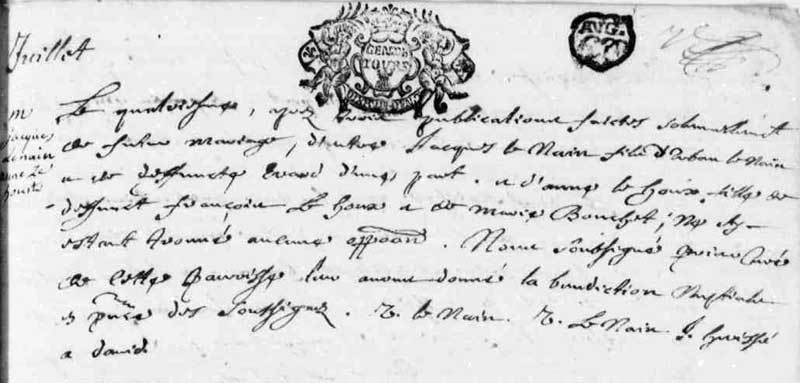 GENER
TOURS
AVG.
Juillet
m
Jacques
le nain
anne le
houx
Le quatriesme, apres trois publications faictes solemnellement
de futur mariage, d'entre Jacques le Nain fils d'Urban le Nain
et de deffuncte d'une part. et d'anne le houx fille de
deffunct françois le houx et de marie Bouchet, ne sy
estant trouvé aucune oppoon. Nous soubsigné prieur Curé
de cette parroisse leur avons donné la benediction Nuptiale
en pnce des soussignez. V. le Nain. V. le Nain J.
a david